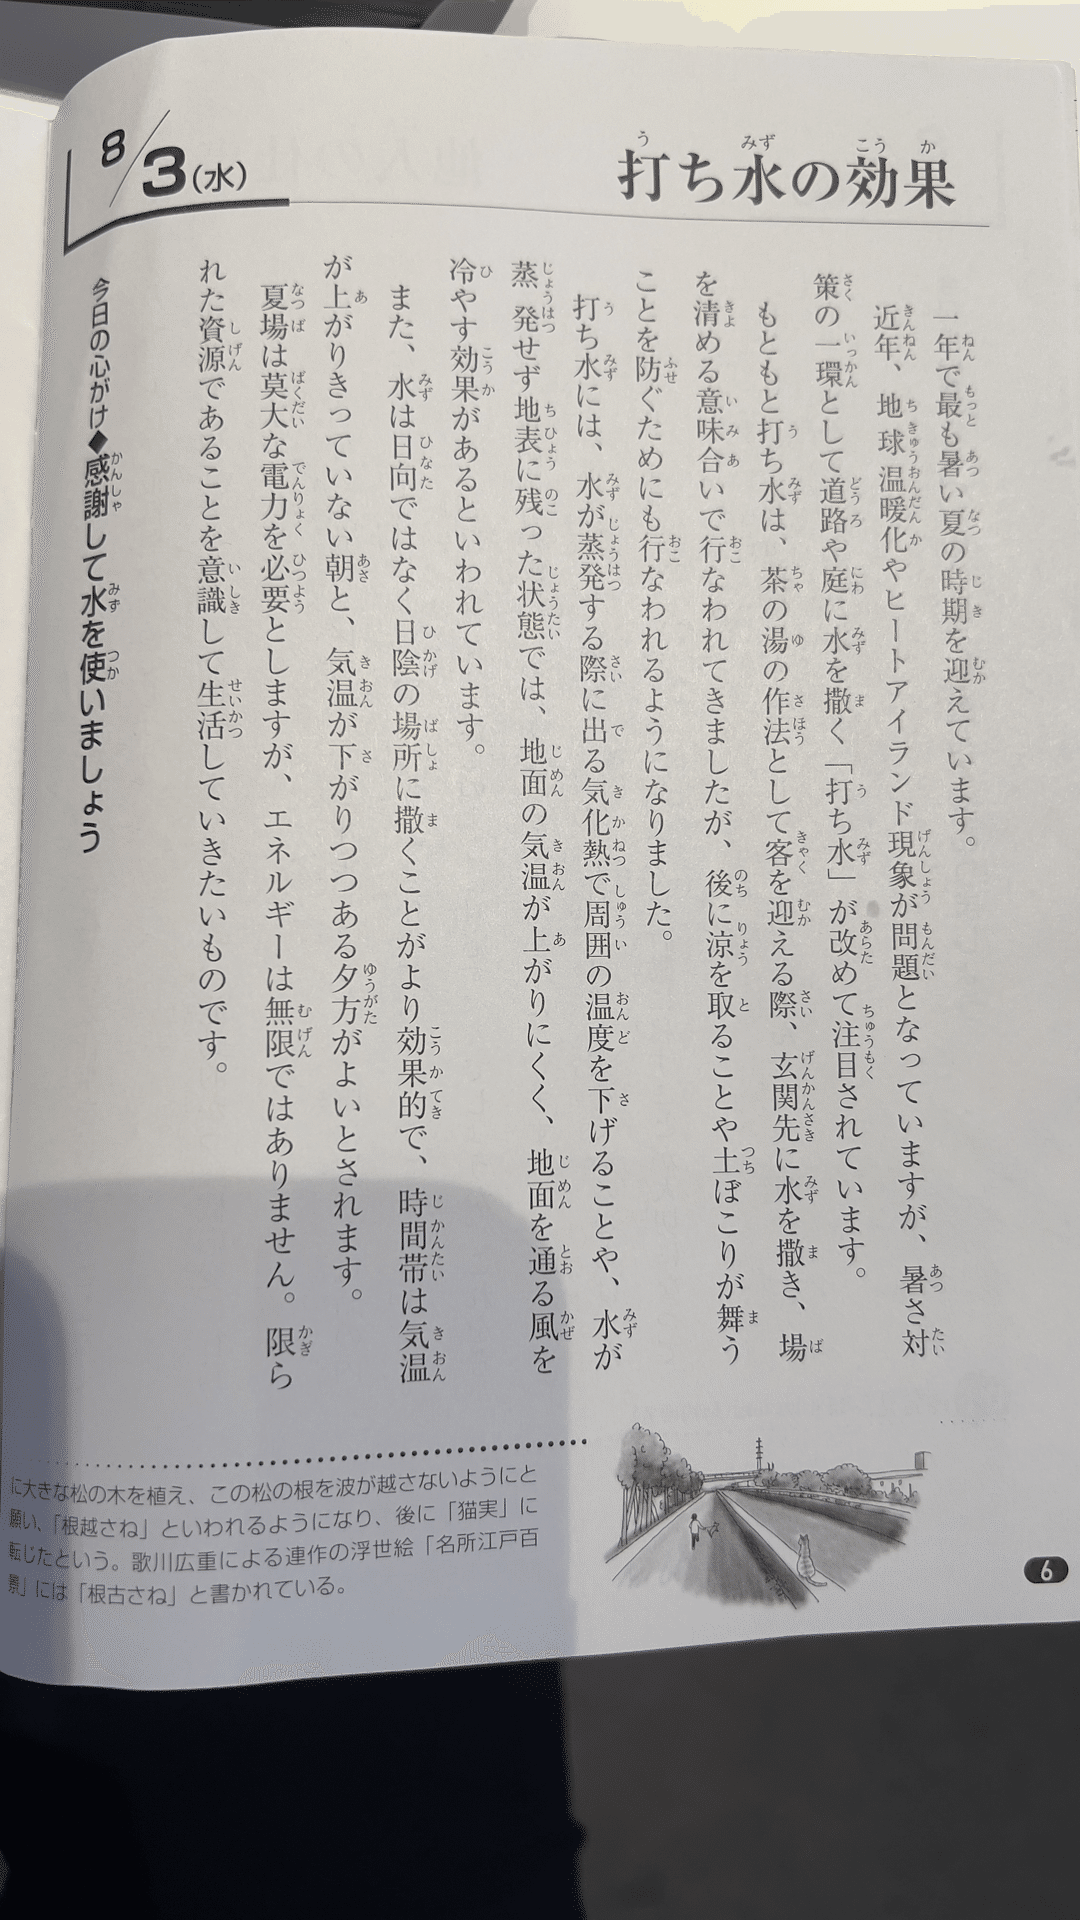 8/3(水)
打ち水の効果
一年で最も暑い夏の時期を迎えています。
近年、地球温暖化やヒートアイランド現象が問題となっていますが、暑さ対
策の一環として道路や庭に水を撒く「打ち水」が改めて注目されています。
もともと打ち水は、茶の湯の作法として客を迎える際、玄関先に水を撒き、場
を清める意味合いで行なわれてきましたが、後に涼を取ることや土ぼこりが舞う
ことを防ぐためにも行なわれるようになりました。
打ち水には、水が蒸発する際に出る気化熱で周囲の温度を下げることや、水が
蒸発せず地表に残った状態では、地面の気温が上がりにくく、地面を通る風を
冷やす効果があるといわれています。
また、水は日向ではなく日陰の場所に撒くことがより効果的で、時間帯は気温
が上がりきっていない朝と、気温が下がりつつある夕方がよいとされます。
夏場は莫大な電力を必要としますが、エネルギーは無限ではありません。限ら
れた資源であることを意識して生活していきたいものです。
今日の心がけ◆感謝して水を使いましょう
に大きな松の木を植え、この松の根を波が越さないようにと
願い、「根越さね」といわれるようになり、後に「猫実」に
転じたという。歌川広重による連作の浮世絵「名所江戸百
景」には「根古さね」と書かれている。
6